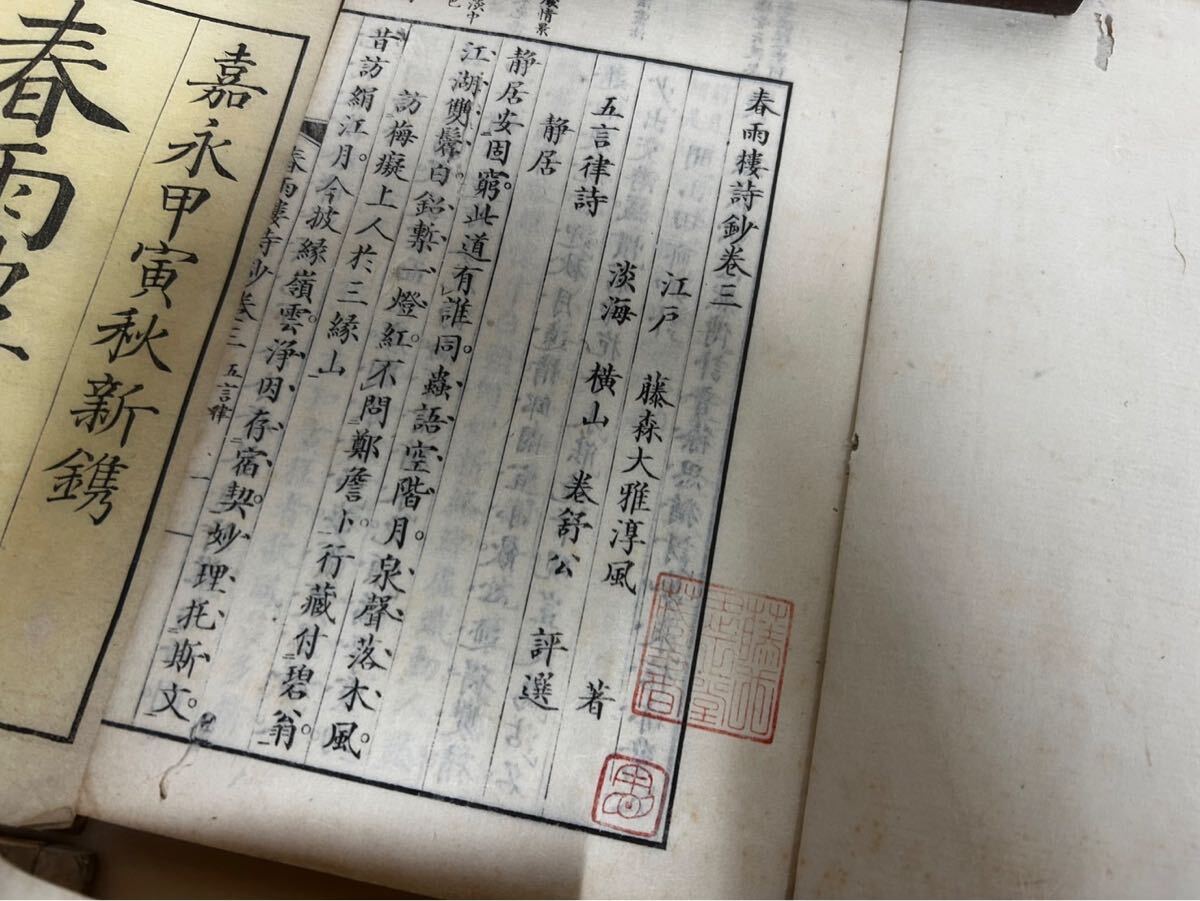 春雨樓詩鈔卷三
江戸　藤森大雅淳風　著
淡海　橫山　卷舒公　評選
五言律詩
靜居
靜居安固窮。此道有誰同。蟲語空階月。泉聲落木風。
江湖雙鬢白。鉛槧一燈紅。不問鄭詹卜。行藏付碧翁。
訪梅癡上人於三縁山
昔訪絹江月。今披緣嶺雲。淨因存宿契。妙理托斯文。
春雨樓詩鈔卷三　五言律　一
嘉永甲寅秋新鐫
春雨